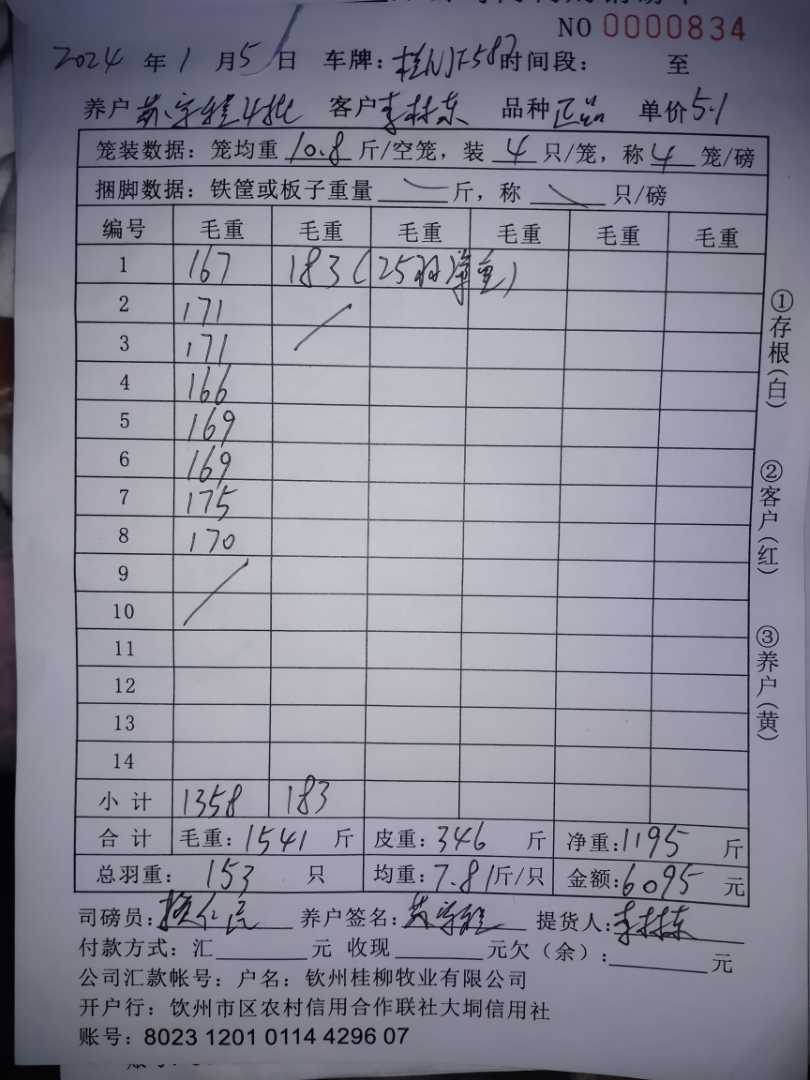 NO 0000834
2024 年 1 月 5 日 车牌: 时间段: 至
养户 客户 李林东 品种 正品 单价 5.1
笼装数据: 笼均重 10.8 斤/空笼, 装 4 只/笼, 称 4 笼/磅
捆脚数据: 铁筐或板子重量 斤, 称 只/磅
编号 毛重 毛重 毛重 毛重 毛重 毛重
1 167 183 (25羽 重)
2 171
3 171
4 166
5 169
6 169
7 175
8 170
9
10
11
12
13
14
小计 1358 183
合计 毛重: 1541 斤 皮重: 346 斤 净重: 1195 斤
总羽重: 153 只 均重: 7.81 斤/只 金额: 6095 元
司磅员: 养户签名: 提货人: 李林东
付款方式: 汇 元 收现 元欠(余): 元
公司汇款帐号: 户名: 钦州桂柳牧业有限公司
开户行: 钦州市区农村信用合作联社大垌信用社
账号: 8023 1201 0114 4296 07
①存根(白)
②客户(红)
③养户(黄)